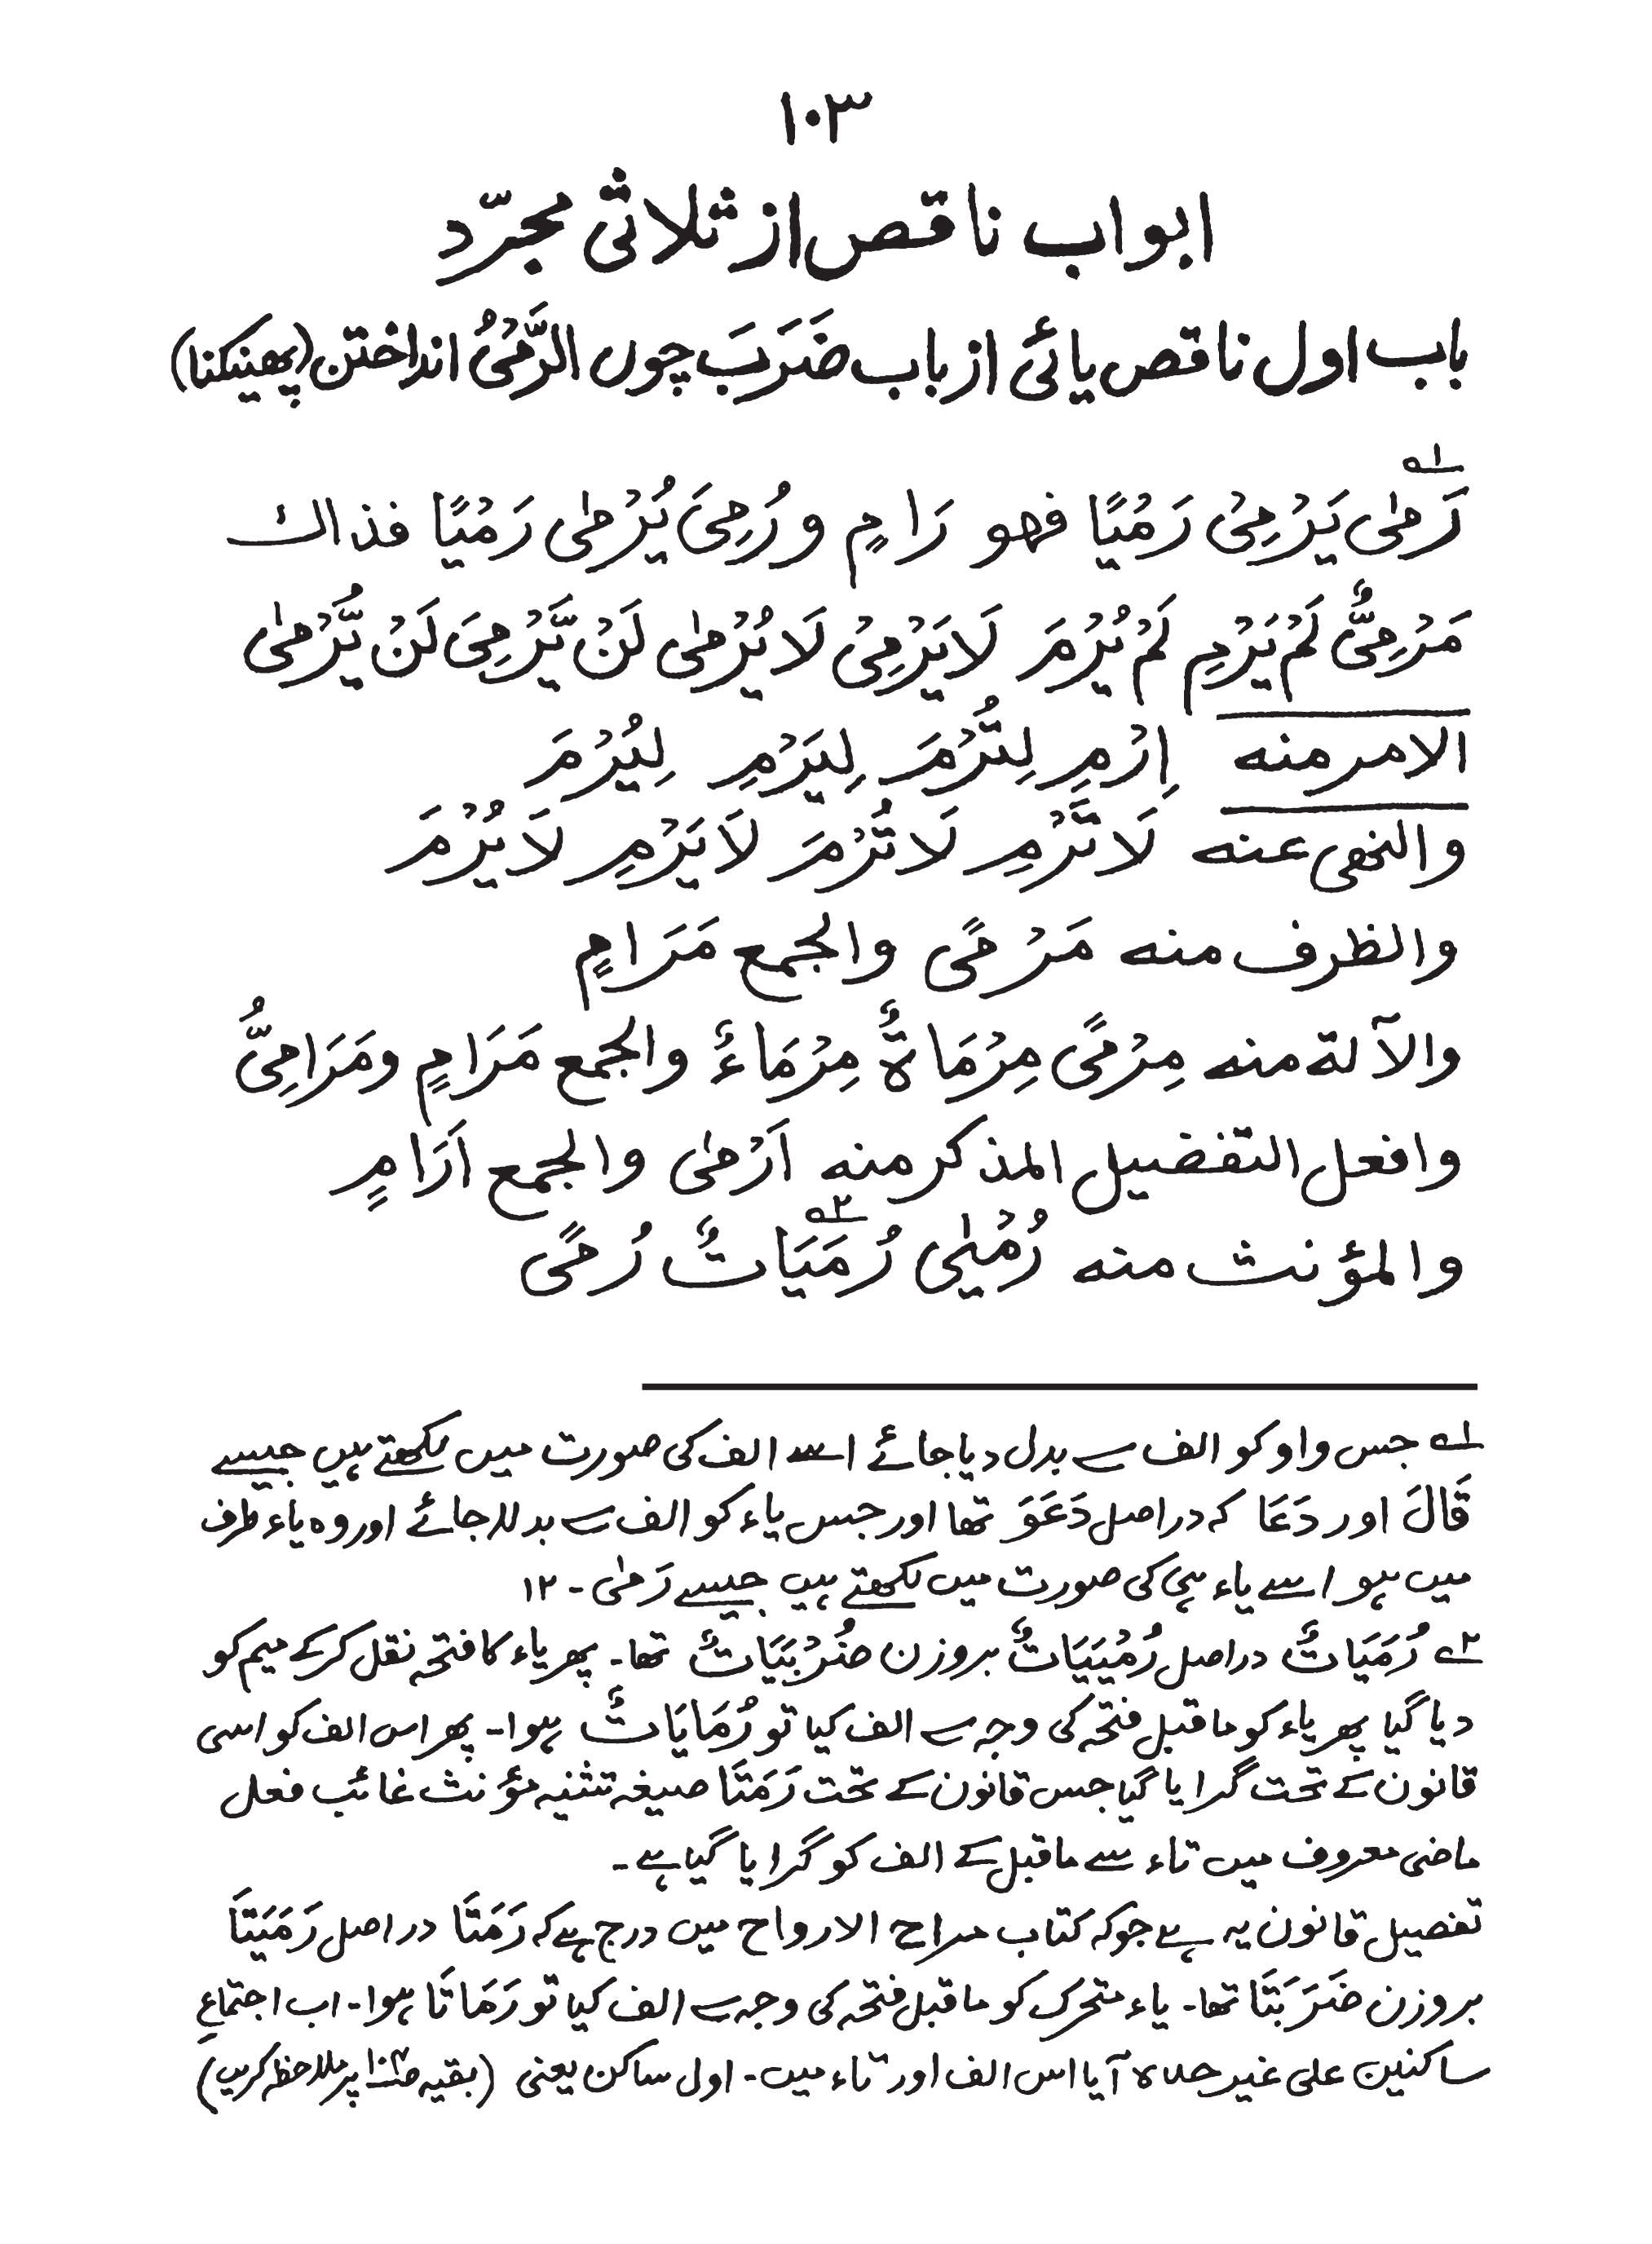 ۱۰۳
ابواب ناقص از ثلاثی مجرّد
باب اول ناقص یائی از باب ضَرَبَ چوں الرَّمْیُ انداختن (پھینکنا)
۱؎
رَمٰی یَرْمِیْ رَمْیًا فھو رَامٍ و رُمِیَ یُرْمٰی رَمْیًا فذاك
مَرْمِیٌّ لَمْ یَرْمِ لَمْ یُرْمَ لَا یَرْمِیْ لَا یُرْمٰی لَنْ یَّرْمِیَ لَنْ یُّرْمٰی
الامر منه اِرْمِ لِتُرْمَ لِیَرْمِ لِیُرْمَ
والنھی عنه لَا تَرْمِ لَا تُرْمَ لَا یَرْمِ لَا یُرْمَ
والظرف منه مَرْمًی والجمع مَرَامٍ
والآلة منه مِرْمًی مِرْمَاةٌ مِرْمَاءٌ والجمع مَرَامٍ ومَرَامِیُّ
وافعل التفضیل المذکر منه اَرْمٰی والجمع اَرَامٍ
والمؤنث منه رُمْیٰی رُمَیَاتٌ۲؎ رُمًی
۱؎ جس واو کو الف سے بدل دیا جائے اسے الف کی صورت میں لکھتے ہیں جیسے
قَالَ اور دَعَا کہ دراصل دَعَوَ تھا اور جس یاء کو الف سے بدلا جائے اور وہ یاء طرف
میں ہو اسے یاء ہی کی صورت میں لکھتے ہیں جیسے رَمٰی - ۱۲
۲؎ رُمَیَاتٌ دراصل رُمْیَیَاتٌ بروزن ضُرْبَیَاتٌ تھا۔ پھر یاء کا فتحہ نقل کرکے میم کو
دیا گیا پھر یاء کو ماقبل فتحہ کی وجہ سے الف کیا تو رُمَایَاتٌ ہوا۔ پھر اس الف کو اسی
قانون کے تحت گرایا گیا جس قانون کے تحت رَمَتَا صیغہ تثنیہ مؤنث غائب فعل
ماضی معروف میں تاء سے ماقبل کے الف کو گرایا گیا ہے۔
تفصیل قانون یہ ہے جو کہ کتاب مراح الارواح میں درج ہے کہ رَمَتَا دراصل رَمَیَتَا
بروزن ضَرَبَتَا تھا۔ یاء متحرک کو ماقبل فتحہ کی وجہ سے الف کیا تو رَمَاتَا ہوا۔ اب اجتماعِ
ساکنین علی غیر حدہ آیا اس الف اور تاء میں۔ اول ساکن یعنی (بقیہ ص۱۰۴ پر ملاحظہ کریں)